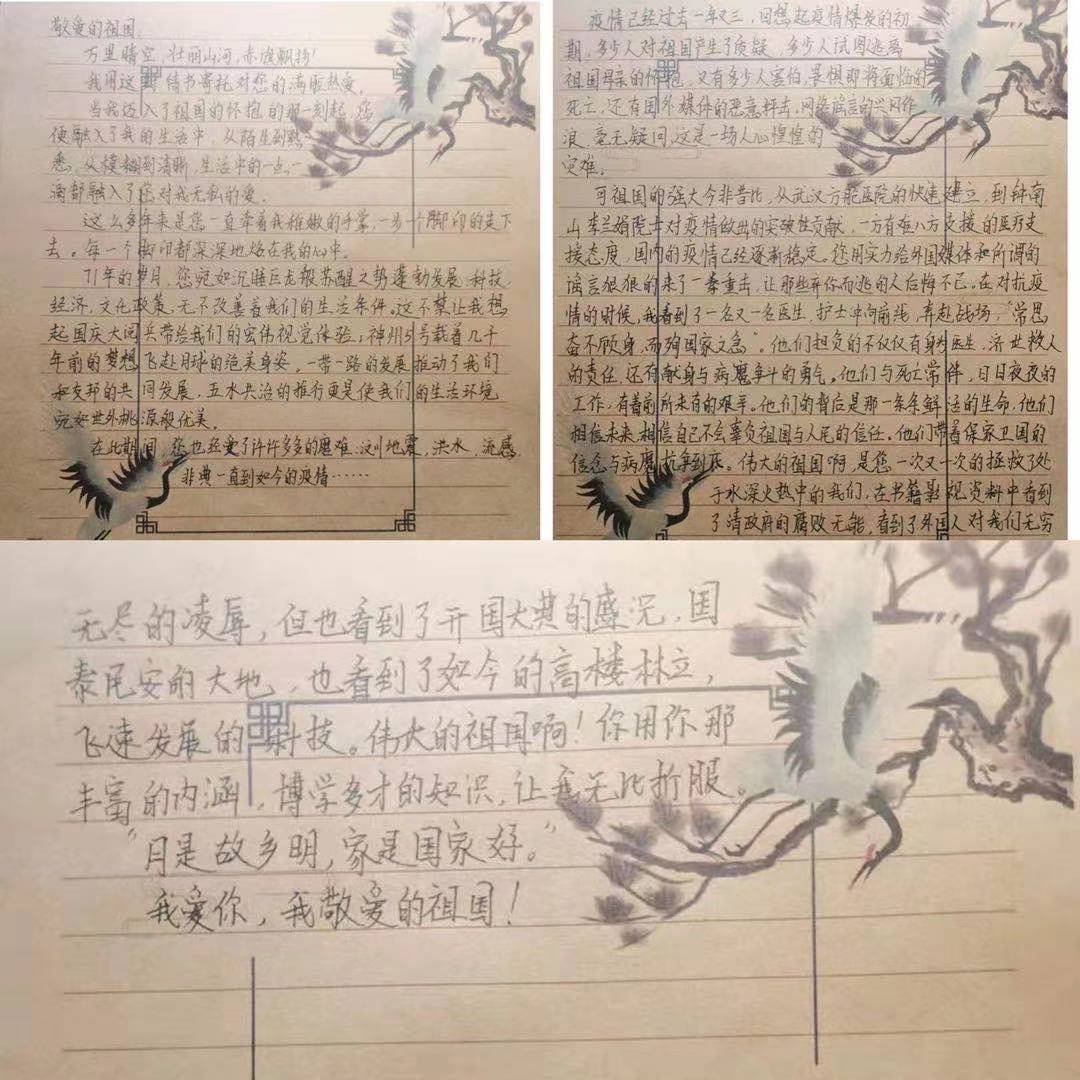 敬爱的祖国:
万里晴空,壮丽山河,赤旗飘扬!
我用这封情书寄托对您的满腔热爱。
当我迈入了祖国的怀抱的那一刻起,您
便融入了我的生活中,从陌生到熟
悉,从模糊到清晰,生活中的一点一
滴都融入了您对我无私的爱。
这么多年来是您一直牵着我稚嫩的手掌,一步一个脚印的走下
去。每一个脚印都深深地烙在我的心中。
71年的岁月,您宛如沉睡巨龙般苏醒之势蓬勃发展,科技,
经济,文化政策,无不改善着我们的生活条件。这不禁让我想
起国庆大阅兵带给我们的宏伟视觉体验;神州5号载着几千
年前的梦想飞赴月球的绝美身姿。一带一路的发展推动了我们
和友邦的共同发展,五水共治的推行更是使我们的生活环境
宛如世外桃源般优美。
在此期间,您也经受了许许多多的磨难:汶川地震,洪水,流感,
非典一直到如今的疫情……
疫情已经过去一年又三,回想起疫情爆发的初
期,多少人对祖国产生了质疑,多少人试图逃离
祖国母亲的怀抱,又有多少人害怕,畏惧即将面临的
死亡,还有国外媒体的恶意抨击,网络谣言的兴风作
浪,毫无疑问,这是一场人心惶惶的
灾难。
可祖国的强大今非昔比,从武汉方舱医院的快速建立,到钟南
山,李兰娟院士对疫情做出的突破性贡献,一方有难八方支援的医疗支
援态度,国内的疫情已经逐渐稳定。您用实力给外国媒体和所谓的
谣言狠狠的来了一拳重击,让那些弃你而逃的人后悔不已。在对抗疫
情的时候,我看到了一名又一名医生,护士冲向前线,奔赴战场,“常思
奋不顾身,而殉国家之急”。他们担负的不仅仅有身为医生,济世救人
的责任,还有献身与病魔争斗的勇气。他们与死亡常伴,日日夜夜的
工作,有着前所未有的艰辛。他们的背后是那一条条鲜活的生命,他们
相信未来,相信自己不会辜负祖国与人民的信任。他们带着保家卫国的
信念与病魔抗争到底。伟大的祖国啊,是您一次又一次的拯救了处
于水深火热中的我们,在书籍影视资料中看到
了清政府的腐败无能,看到了外国人对我们无穷
无尽的凌辱,但也看到了开国大典的盛况,国
泰民安的大地,也看到了如今的高楼林立,
飞速发展的科技。伟大的祖国啊!你用你那
丰富的内涵,博学多才的知识,让我无比折服。
“月是故乡明,家是国家好。”
我爱你,我敬爱的祖国!